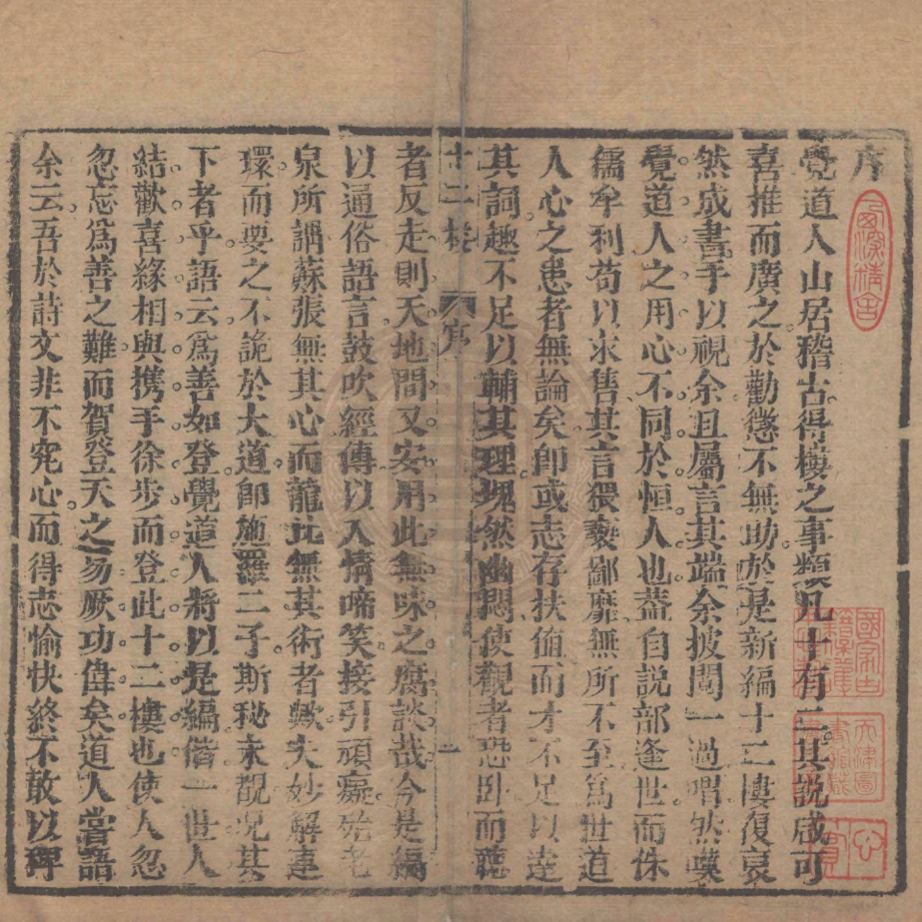 序
覺道人山居稽古得樓之事類凡十有二其說咸可
喜推而廣之於勸懲不無助於是新編十二樓復裒
然成書手以視余且屬言其端余披閱一過喟然嘆
覺道人之用心不同於恒人也蓋自說部逢世而侏
儒牟利苟以求售其言猥褻鄙靡無所不至為世道
人心之患者無論矣即或志存扶植而才不足以達
其詞趣不足以輔其理塊然幽悶使觀者恐臥而聽
十二樓 序 一
者反走則天地間又安用此無味之腐談哉今是編
以通俗語言鼓吹經傳以入情啼笑接引頑癡殆老
泉所謂蘇張無其心而龍比無其術者歟夫妙解連
環而要之不詭於大道即施羅二子斯秘未覩況其
下者乎語云為善如登覺道人將以是編偕一世人
結歡喜緣相與携手徐步而登此十二樓也使人忽
忽忘為善之難而賀登天之易厥功偉矣道人嘗語
余云吾於詩文非不究心而得志愉快終不敢以稗
國家古籍
天津圖書館藏